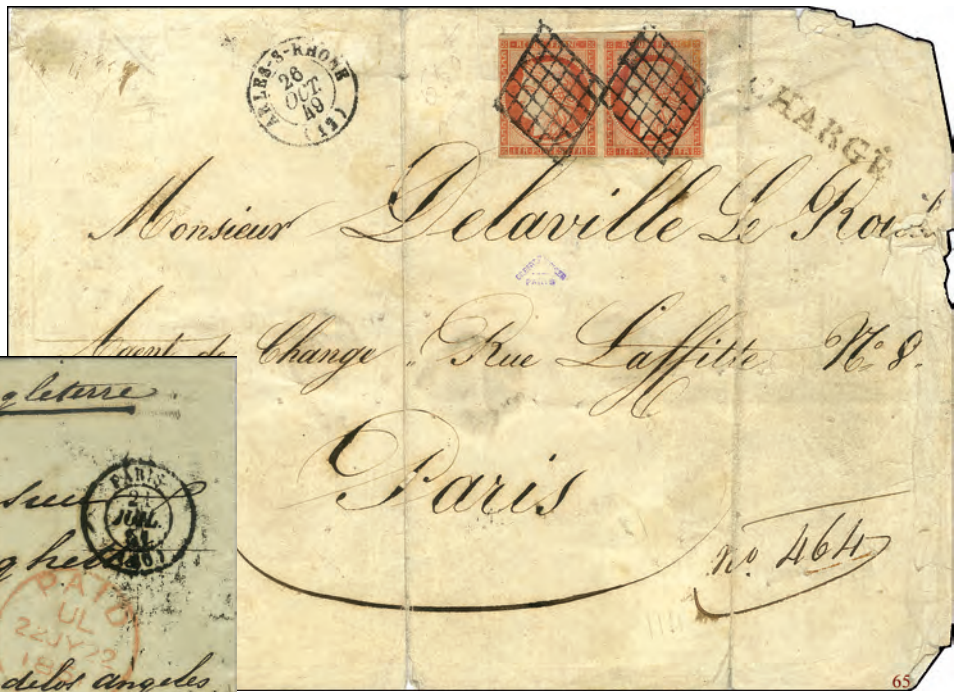 ARLES-S-RHONE
26
OCT.
49
(12)
CHARGÉ
Monsieur Delaville Le Roulx
Agent de Change Rue Laffitte N° 8.
Paris
n° 464
PARIS
gleterre
PARIS
JUIL.
(60)
PAID
UL
22JY22
de los angeles
65